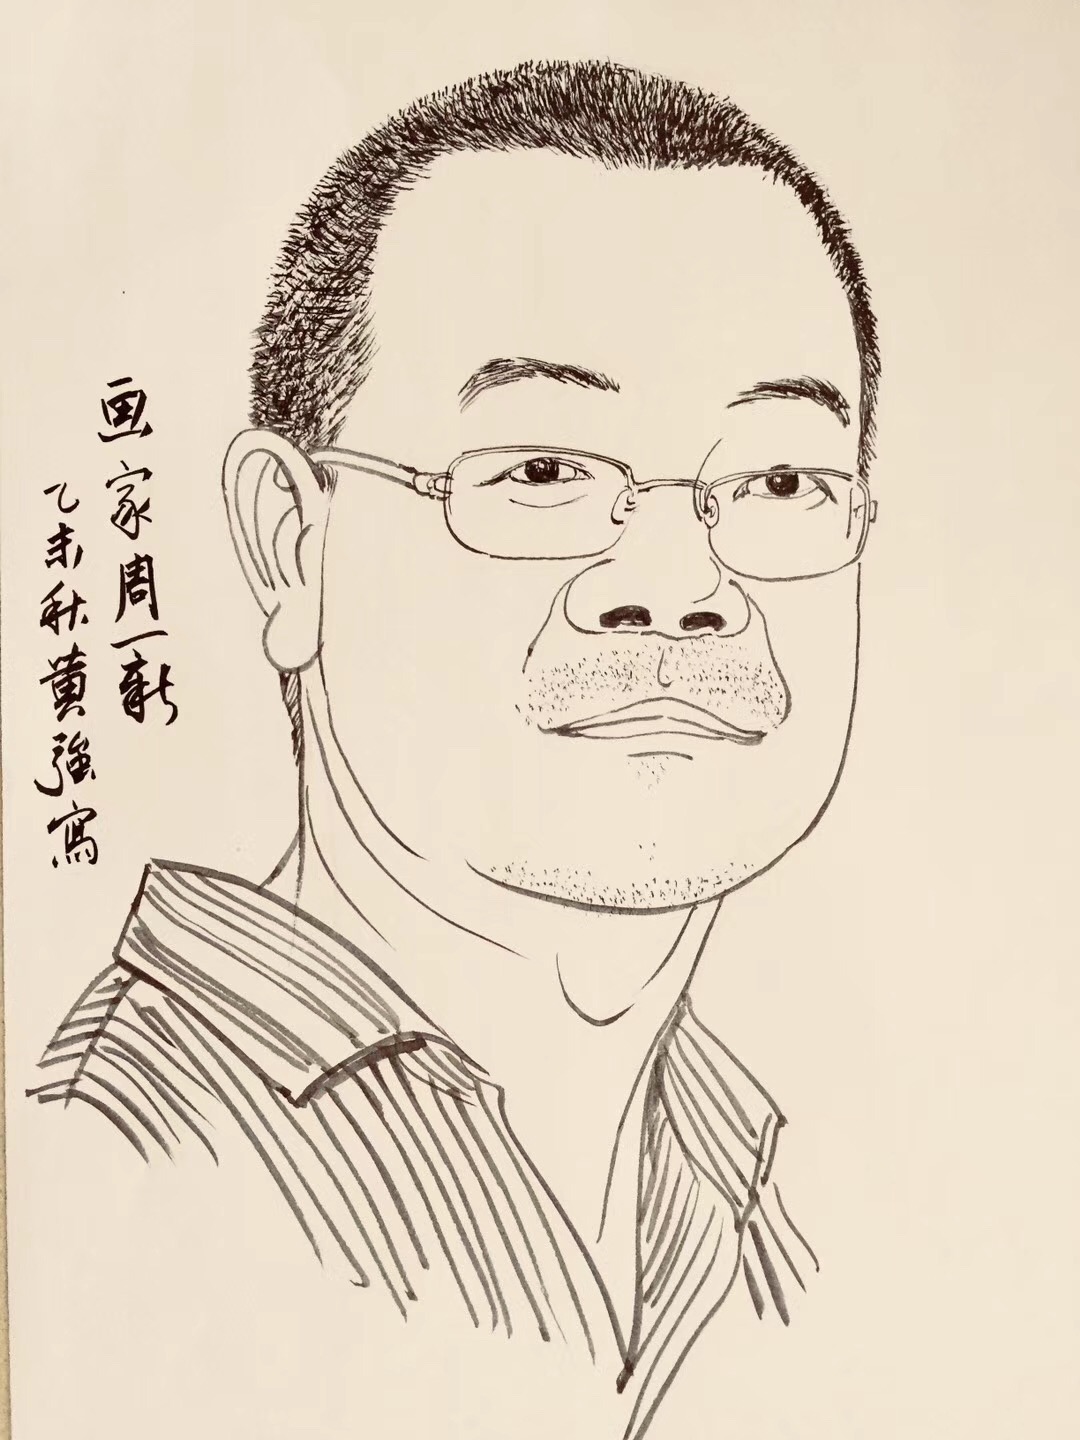 画家周一新
乙未秋黄強寫